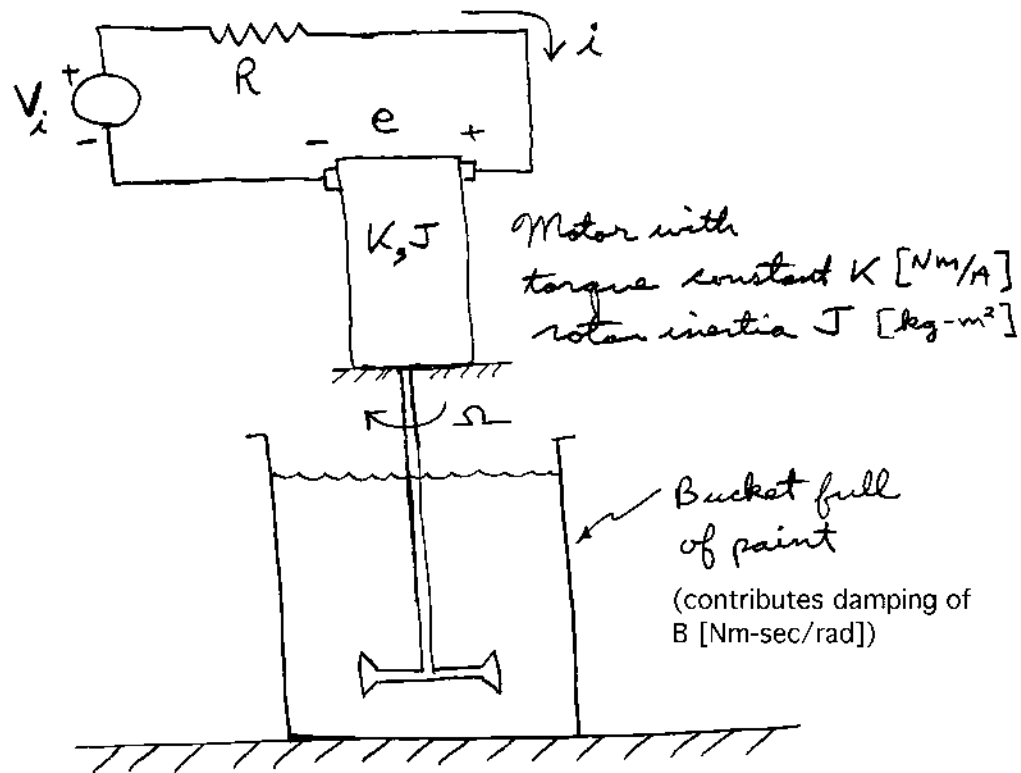 i
R
+
V_i
-
e
-
+
K, J
Motor with
torque constant K [Nm/A]
rotor inertia J [kg-m²]
Ω
Bucket full
of paint
(contributes damping of
B [Nm-sec/rad])